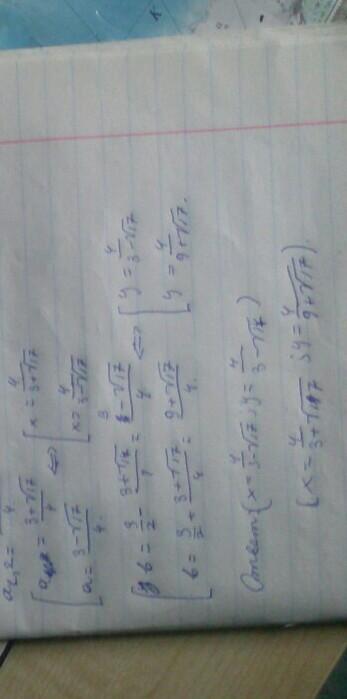 a₁,₂ = 4
[ a = (3+√17)/4 ⇔ [ x = 4/(3+√17)
[ a = (3-√17)/4. [ x = 4/(3-√17)
[ b = 3/2 - (3+√17)/4 = (3-√17)/4 ⇔ [ y = 4/(3-√17)
[ b = 3/2 + (3+√17)/4 = (9+√17)/4. [ y = 4/(9+√17).
Ответ { x = 4/(3-√17); y = 4/(3-√17) )
( x = 4/(3+√17); y = 4/(9+√17) ).